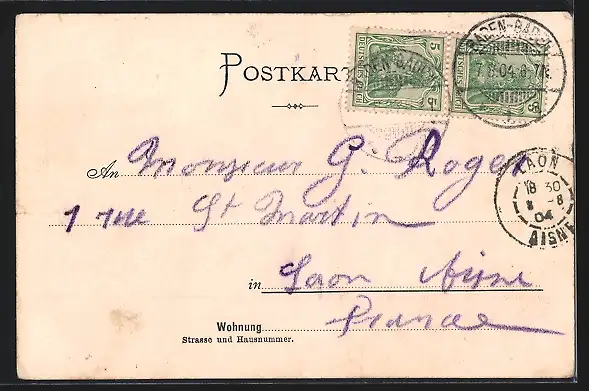 POSTKAR
5 DEUTSCHES REICH 5
BADEN-BADEN
7.8.04.6-7N.
An Monsieur G. Roger
LAON
18 30
8 -8
04
1 rue St Martin
in Laon Aisne
France
Wohnung
Strasse und Hausnummer.